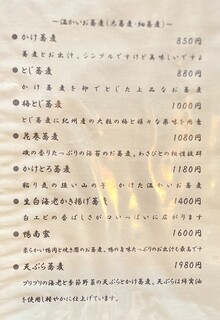 〜温かいお蕎麦(太蕎麦・細蕎麦)〜
● かけ蕎麦 850円
蕎麦とお出汁、シンプルですけど美味しいですよ
● とじ蕎麦 880円
かけ蕎麦を卵でとじた上品なお蕎麦
● 梅とじ蕎麦 1000円
とじ蕎麦に紀州産の大粒の梅と様々な薬味を用意
● 花巻蕎麦 1080円
磯の香りたっぷりの海苔のお蕎麦、わさびとの相性抜群
● かけとろ蕎麦 1180円
粘り気の強い山の芋 かけた温かいお蕎麦
● 生白海老かき揚げ蕎麦 1400円
白エビの香ばしさが口いっぱいに広がります
● 鴨南蛮 1600円
柔らかい鴨肉と焼き葱のお蕎麦、鴨の旨味たっぷりのお出汁も最高です
● 天ぷら蕎麦 1980円
プリプリの海老と季節野菜の天ぷらとかけ蕎麦、天ぷらは綿実油
を使用し軽やかに仕上げています。